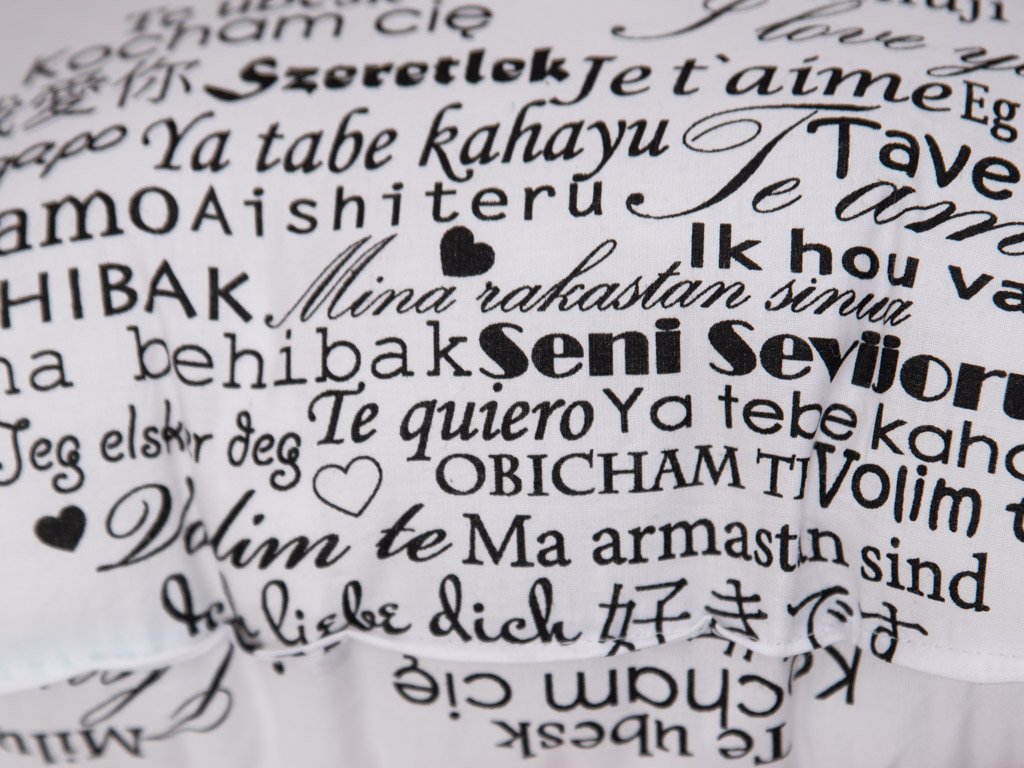 Te ubesk
Kocham cię
I love
愛你 Szeretlek Je t`aime Eg
Ya tabe kahayu Te am Tave
amo Aishiteru
HIBAK Mina rakastan sinua Ik hou va
na behibak Seni Sevijoru
Jeg elsker deg Te quiero Ya tebe kaha
OBICHAM TI Volim t
Volim te Ma armastan sind
Ich liebe dich 好きです
Kocham cię
Te ubesk
Milu